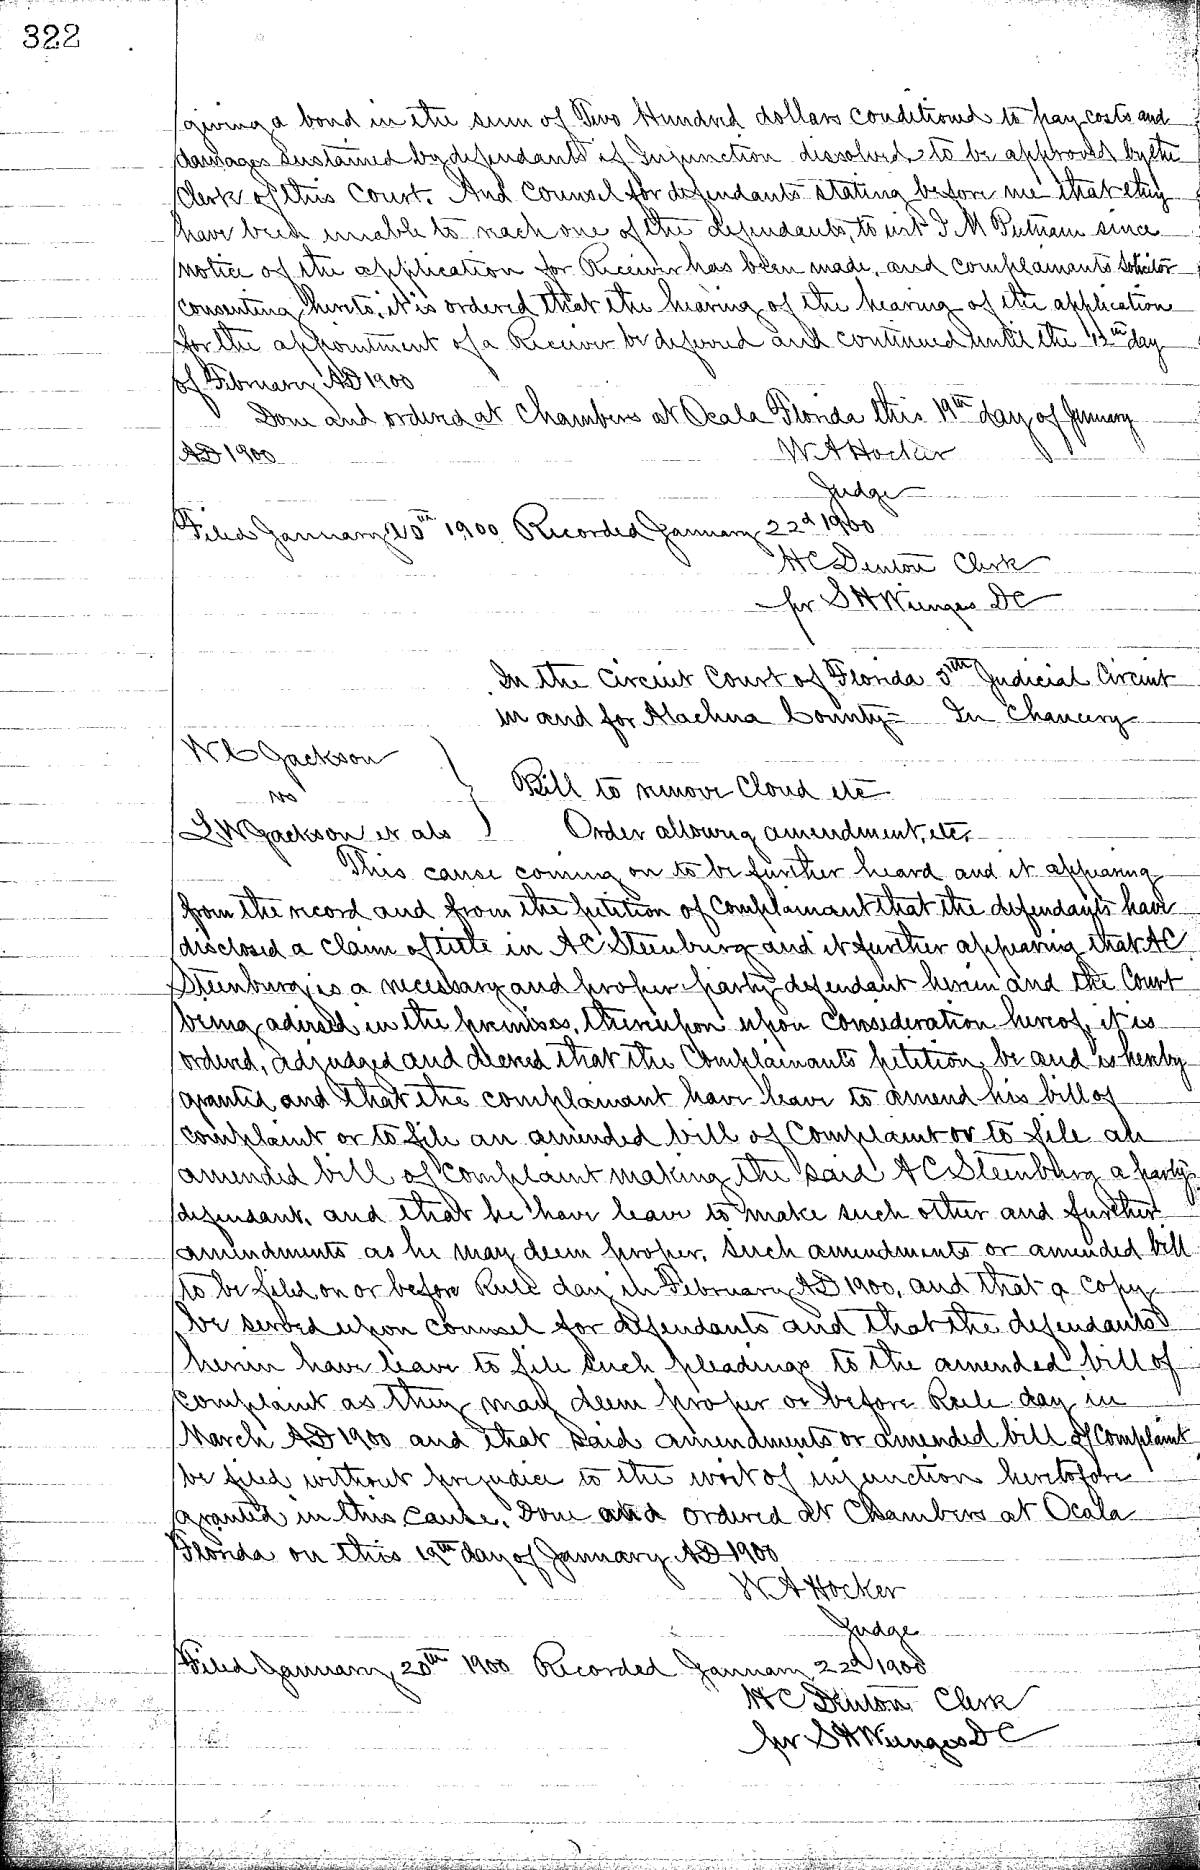 322
giving a bond in the sum of Two Hundred dollars conditioned to pay costs and
damages sustained by defendants if Injunction dissolved to be approved by the
Clerk of this Court. And Counsel for defendants stating before me that they
have been unable to reach one of the defendants, to wit J M Putnam since
notice of the application for Receiver has been made, and complainants Solicitor
consenting hereto, it is ordered that the hearing of the hearing of the application
for the appointment of a Receiver be deferred and continued until the 13th day
of February AD 1900
Done and ordered at Chambers at Ocala Florida this 19th day of January
AD 1900 W A Hocker
Judge
Filed January 20th 1900 Recorded January 22d 1900
H C Denton Clerk
per S H Wienges DC
In the Circuit Court of Florida 5th Judicial Circuit
in and for Alachua County = In Chancery
W C Jackson
vs
Bill to remove Cloud etc
L W Jackson et als
Order allowing amendment, etc.
This cause coming on to be further heard and it appearing
from the record and from the petition of Complainant that the defendants have
disclosed a claim of title in A C Steenburg and it further appearing that A C
Steenburg is a necessary and proper party defendant herein and the Court
being advised in the premises, thereupon upon consideration hereof, it is
ordered, adjudged and decreed that the Complainants petition be and is hereby
granted and that the complainant have leave to amend his bill of
complaint or to file an amended bill of Complaint or to file an
amended bill of Complaint making the said A C Steenburg a party
defendant, and that he have leave to make such other and further
amendments as he may deem proper, such amendments or amended bill
to be filed on or before Rule day in February AD 1900, and that a copy
be served upon counsel for defendants and that the defendants
herein have leave to file such pleadings to the amended bill of
complaint as they may deem proper or before Rule day in
March AD 1900 and that said amendments or amended bill of Complaint
be filed without prejudice to the writ of injunction heretofore
granted in this cause. Done and ordered at Chambers at Ocala
Florida on this 19th day of January AD 1900
W A Hocker
Judge
Filed January 20th 1900 Recorded January 22d 1900
H C Denton Clerk
per S H Wienges DC